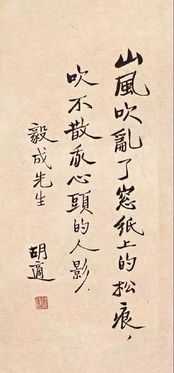 山風吹亂了窓紙上的松痕，
吹不散我心頭的人影．
毅成先生
胡適